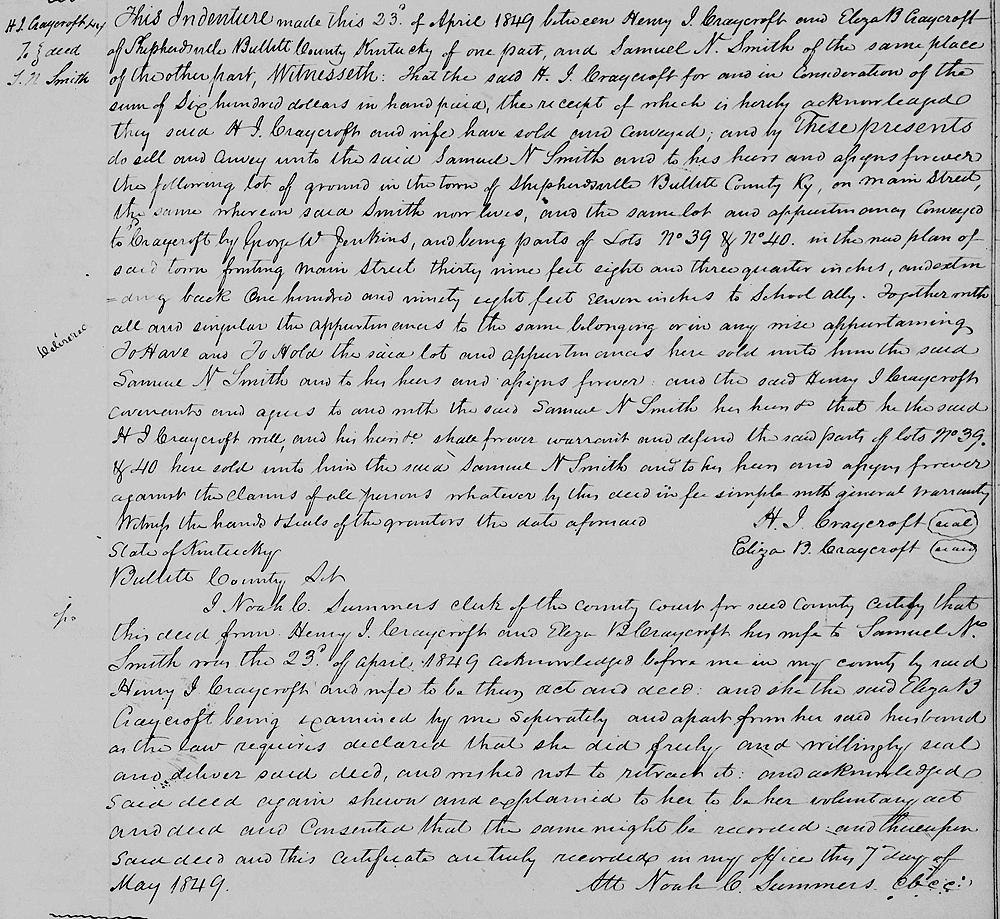 H. I. Craycroft &ux
To } deed
S. N. Smith
This Indenture made this 23d of April 1849 between Henry I. Craycroft and Eliza B Craycroft
of Shepherdsville Bullitt County Kentucky of one part, and Samuel N. Smith of the same place
of the other part, Witnesseth: That the said H. I. Craycroft for and in Consideration of the
sum of Six hundred dollars in hand paid, the receipt of which is hereby acknowledged
they said H I. Craycroft and wife have sold and conveyed; and by These presents
do sell and convey unto the said Samuel N Smith and to his heirs and assigns forever
the following lot of ground in the town of Shepherdsville Bullitt County Ky, on main Street,
the same whereon said Smith now lives, and the same lot and appurtenances Conveyed
to Craycroft by George W Jenkins, and being parts of Lots No 39 & No 40. in the new plan of
said town fronting main Street thirty nine feet eight and three quarter inches, and exten
=ding back One hundred and ninety eight feet eleven inches to School ally. Together with
all and singular the appurtenances to the same belonging or in any wise appertaining
To Have and To Hold the said lot and appurtenances here sold unto him the said
Samuel N Smith and to his heirs and assigns forever: and the said Henry I Craycroft
covenants and agrees to and with the said Samuel N Smith his heirs &c that he the said
H I Craycroft will, and his heirs &c shall forever warrant and defend the said parts of lots No 39.
& 40 here sold unto him the said Samuel N Smith and to his heirs and assigns forever
against the claims of all persons whatever by this deed in fee simple with general warranty
Witness the hands & seals of the grantors the date aforesaid
H. I. Craycroft (seal)
Eliza B. Craycroft (seal)
State of Kentucky
Bullitt County Sct
I Noah C. Summers clerk of the county court for said county certify that
this deed from Henry I. Craycroft and Eliza B Craycroft his wife to Samuel N.
Smith was the 23d of april 1849 acknowledged before me in my county by said
Henry I Craycroft and wife to be their act and deed: and she the said Eliza B
Craycroft being examined by me seperately and apart from her said husband
as the law requires declared that she did freely and willingly seal
and deliver said deed, and wished not to retract it: and acknowledged
said deed again shewn and explained to her to be her voluntary act
and deed and Consented that the same might be recorded and thereupon
said deed and this certificate are truly recorded in my office this 7 day of
May 1849.
Att Noah C. Summers. cbcc:
Delivered